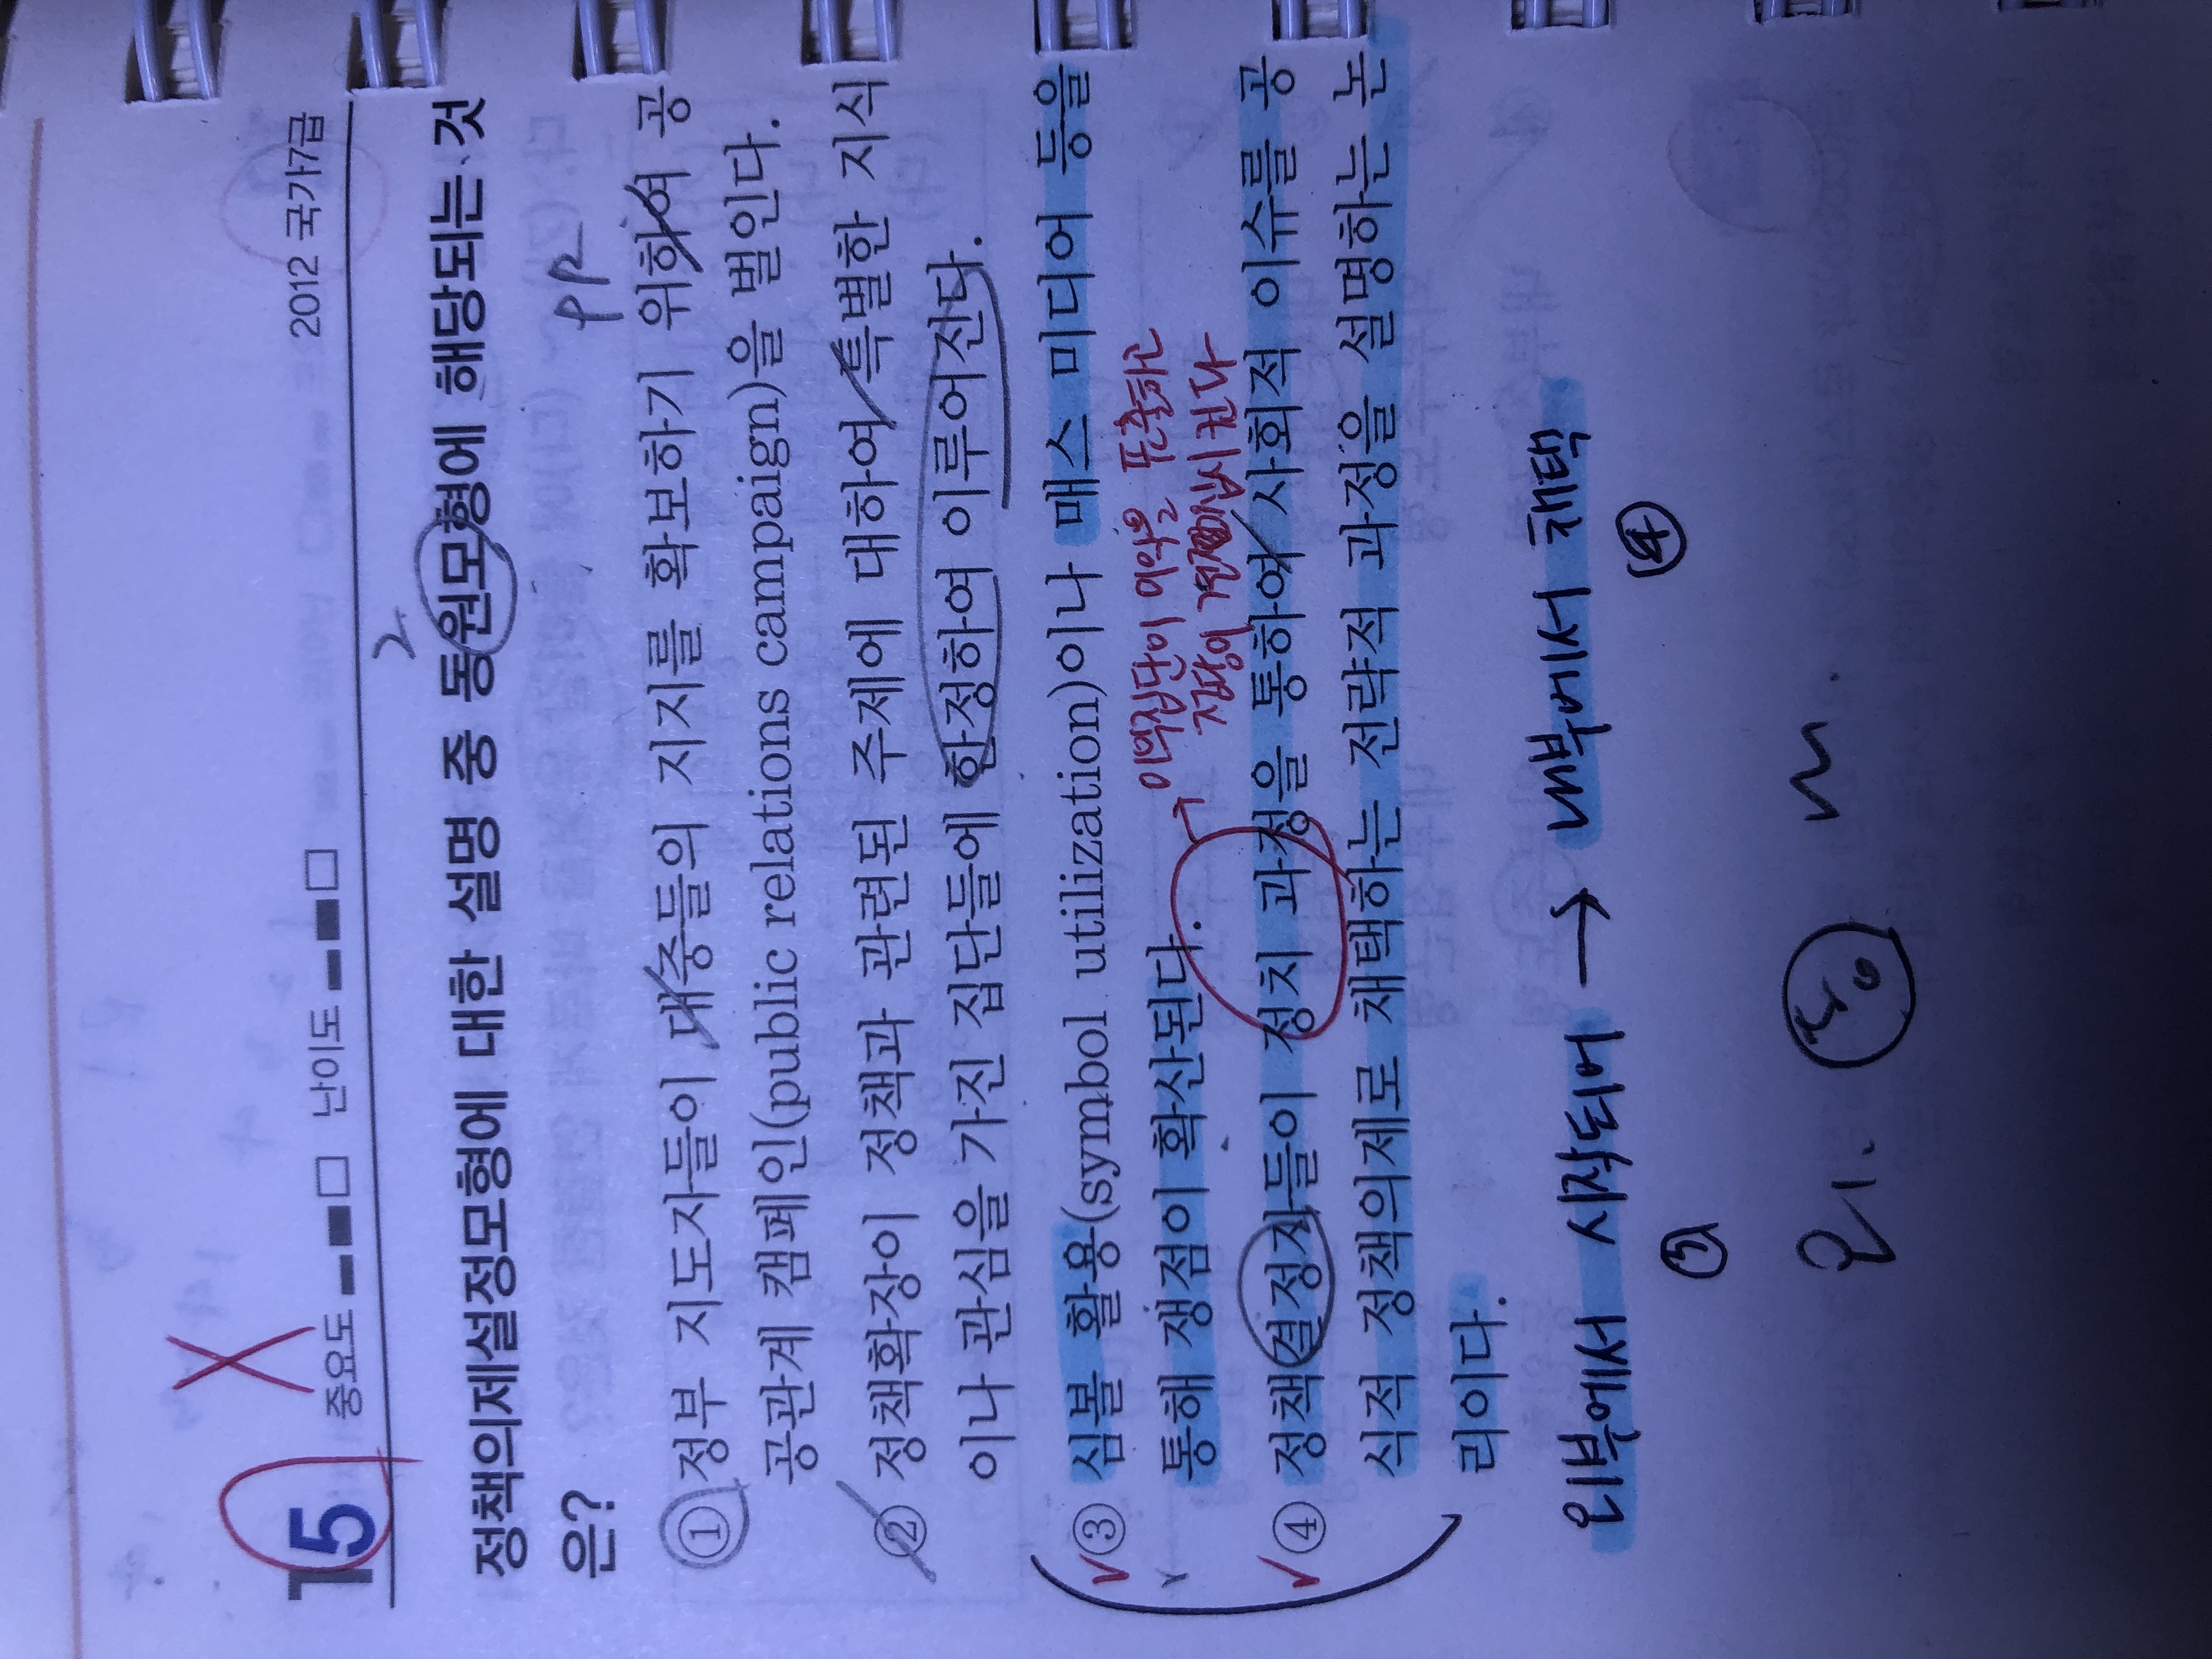 15 중요도 난이도 2012 국가7급
X
2
정책의제설정모형에 대한 설명 중 동원모형에 해당되는 것
은?
PR
① 정부 지도자들이 대중들의 지지를 확보하기 위하여 공
공관계 캠페인(public relations campaign)을 벌인다.
② 정책확장이 정책과 관련된 주제에 대하여 특별한 지식
이나 관심을 가진 집단들에 한정하여 이루어진다.
③ 심볼 활용(symbol utilization)이나 매스 미디어 등을
통해 쟁점이 확산된다.
→ 이익집단이 이익을 표출하고
정당이 결집시킨다
④ 정책결정자들이 정치 과정을 통하여 사회적 이슈를 공
식적 정책의제로 채택하는 전략적 과정을 설명하는 논
리이다.
외부에서 시작되어 → 내부에서 채택
④
외.